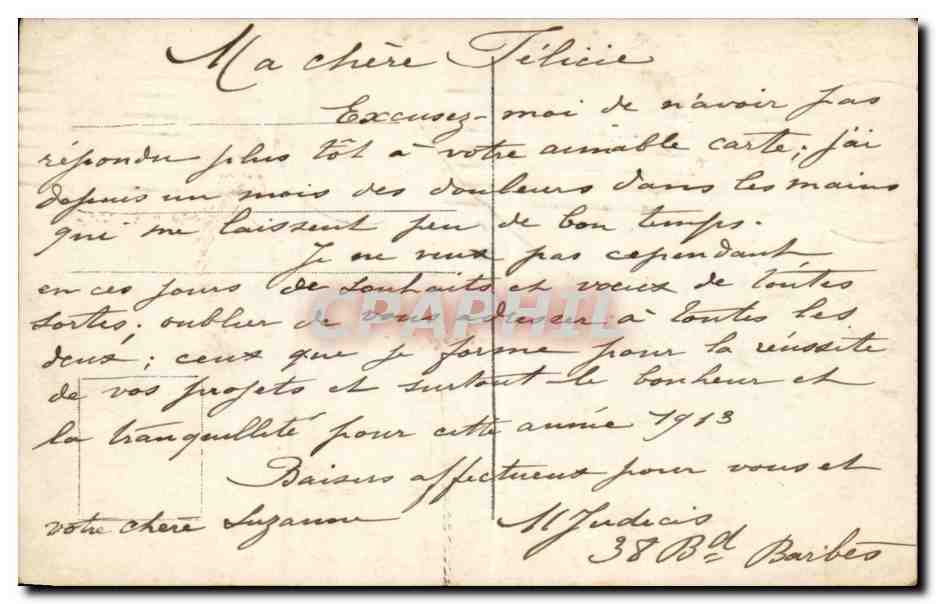 Ma chère Félicie
Excusez-moi de n'avoir pas
répondu plus tôt à votre aimable carte; j'ai
depuis un mois des douleurs dans les mains
qui me laissent peu de bon temps.
Je ne veux pas cependant
en ces jours de souhaits et vœux de toutes
sortes; oublier de vous adresser à toutes les
deux; ceux que je forme pour la réussite
de vos projets et surtout le bonheur et
la tranquillité pour cette année 1913
Baisers affectueux pour vous et
votre chère Suzanne
38 Bd Barbès
CPAPHIL